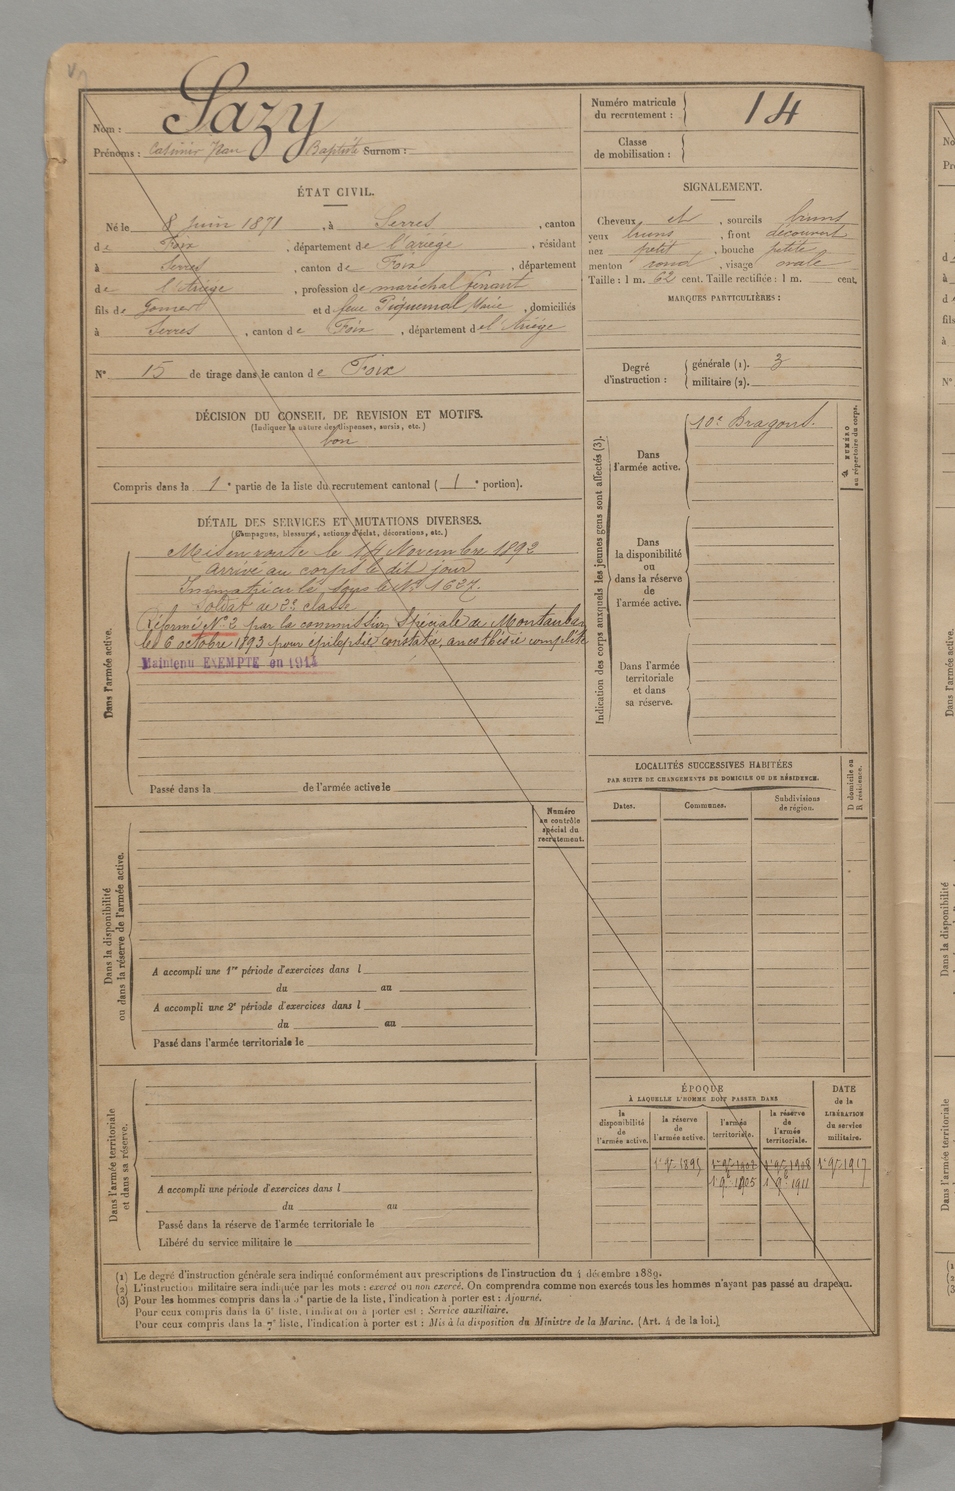 Nom : Sazy
Prénoms : Casimir Jean Baptiste Surnom :
Numéro matricule du recrutement : 14
Classe de mobilisation :
ÉTAT CIVIL.
Né le 8 Juin 1871, à Serres, canton
de Foix, département de l'ariège, résidant
à Serres, canton de Foix, département
de l'Ariège, profession de maréchal ferrant
fils de et d feue Piquemal Marie, domiciliés
à Serres, canton de Foix, département de l'Ariège
N° 15 de tirage dans le canton de Foix
DÉCISION DU CONSEIL DE REVISION ET MOTIFS.
(Indiquer la nature des dispenses, sursis, etc.)
bon
Compris dans la 1e partie de la liste du recrutement cantonal (1e portion).
SIGNALEMENT.
Cheveux et, sourcils bruns
yeux bruns, front découvert
nez petit, bouche petite
menton rond, visage ovale
Taille : 1 m. 62 cent. Taille rectifiée : 1 m. cent.
MARQUES PARTICULIÈRES :
Degré d'instruction :
générale (1). 3
militaire (2).
DÉTAIL DES SERVICES ET MUTATIONS DIVERSES.
(Campagnes, blessures, actions d'éclat, décorations, etc.)
Dans l'armée active.
Mis en route le 14 Novembre 1892
arrivé au corps le dit jour
Immatriculé sous le N°
Soldat de 2e classe
Réformé N° 2 par la commission Spéciale de Montauban
le 6 octobre 1893 pour épilepsie constatée, anesthésie complète
Maintenu EXEMPTÉ en 1914
Passé dans la de l'armée active le
Indication des corps auxquels les jeunes gens sont affectés (3).
Dans l'armée active.
10e Dragons.
NUMÉRO au répertoire du corps.
Dans la disponibilité ou dans la réserve de l'armée active.
Dans l'armée territoriale et dans sa réserve.
LOCALITÉS SUCCESSIVES HABITÉES
PAR SUITE DE CHANGEMENTS DE DOMICILE OU DE RÉSIDENCE.
Dates.
Communes.
Subdivisions de région.
D domicile ou R résidence.
Numéro au contrôle spécial du recrutement.
Dans la disponibilité ou dans la réserve de l'armée active.
A accompli une 1re période d'exercices dans l
du au
A accompli une 2e période d'exercices dans l
du au
Passé dans l'armée territoriale le
Dans l'armée territoriale et dans sa réserve.
A accompli une période d'exercices dans l
du au
Passé dans la réserve de l'armée territoriale le
Libéré du service militaire le
ÉPOQUE
À LAQUELLE L'HOMME DOIT PASSER DANS
la disponibilité de l'armée active.
la réserve de l'armée active.
l'armée territoriale.
la réserve de l'armée territoriale.
DATE de la LIBÉRATION du service militaire.
1er 9bre 1895 1er 9bre 1902 1er 9bre 1908 1er 9bre 1917
1 9bre 1905 1 9bre 1911
(1) Le degré d'instruction générale sera indiqué conformément aux prescriptions de l'instruction du 4 décembre 1889.
(2) L'instruction militaire sera indiquée par les mots : exercé ou non exercé. On comprendra comme non exercés tous les hommes n'ayant pas passé au drapeau.
(3) Pour les hommes compris dans la 5e partie de la liste, l'indication à porter est : Ajourné.
Pour ceux compris dans la 6e liste, l'indication à porter est : Service auxiliaire.
Pour ceux compris dans la 7e liste, l'indication à porter est : Mis à la disposition du Ministre de la Marine. (Art. 4 de la loi.)